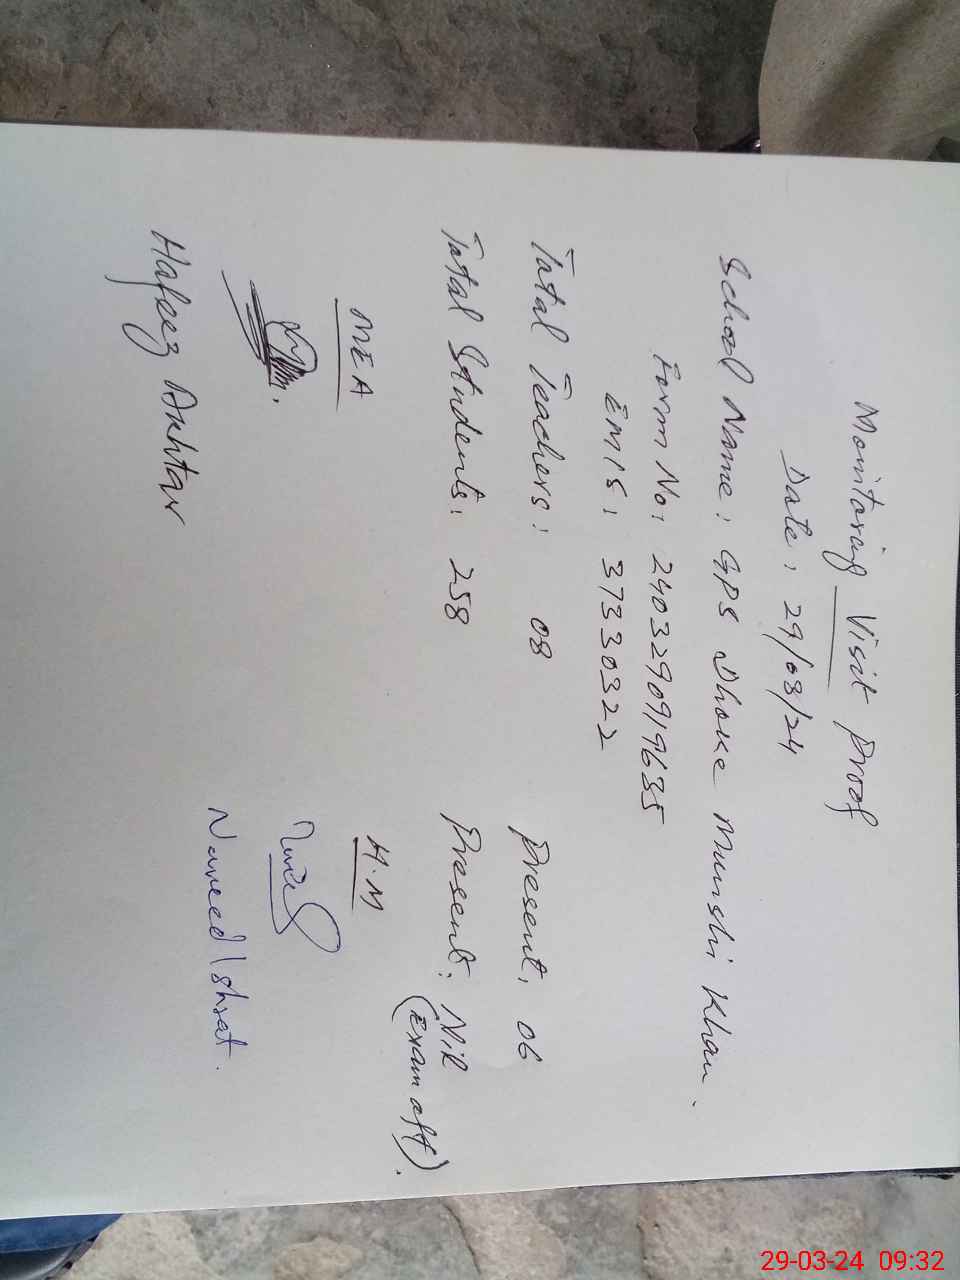 Monitoring Visit Proof
Date: 29/03/24
School Name: GPS Dhoke Munshi Khan.
Form No: 2403290919635
EMIS: 37330322
Total Teachers: 08 Present: 06
Total Students: 258 Present: Nil
(Exam oft).
MEA H.M
Hafeez Akhtar Naveed Ishrat.
29-03-24 09:32